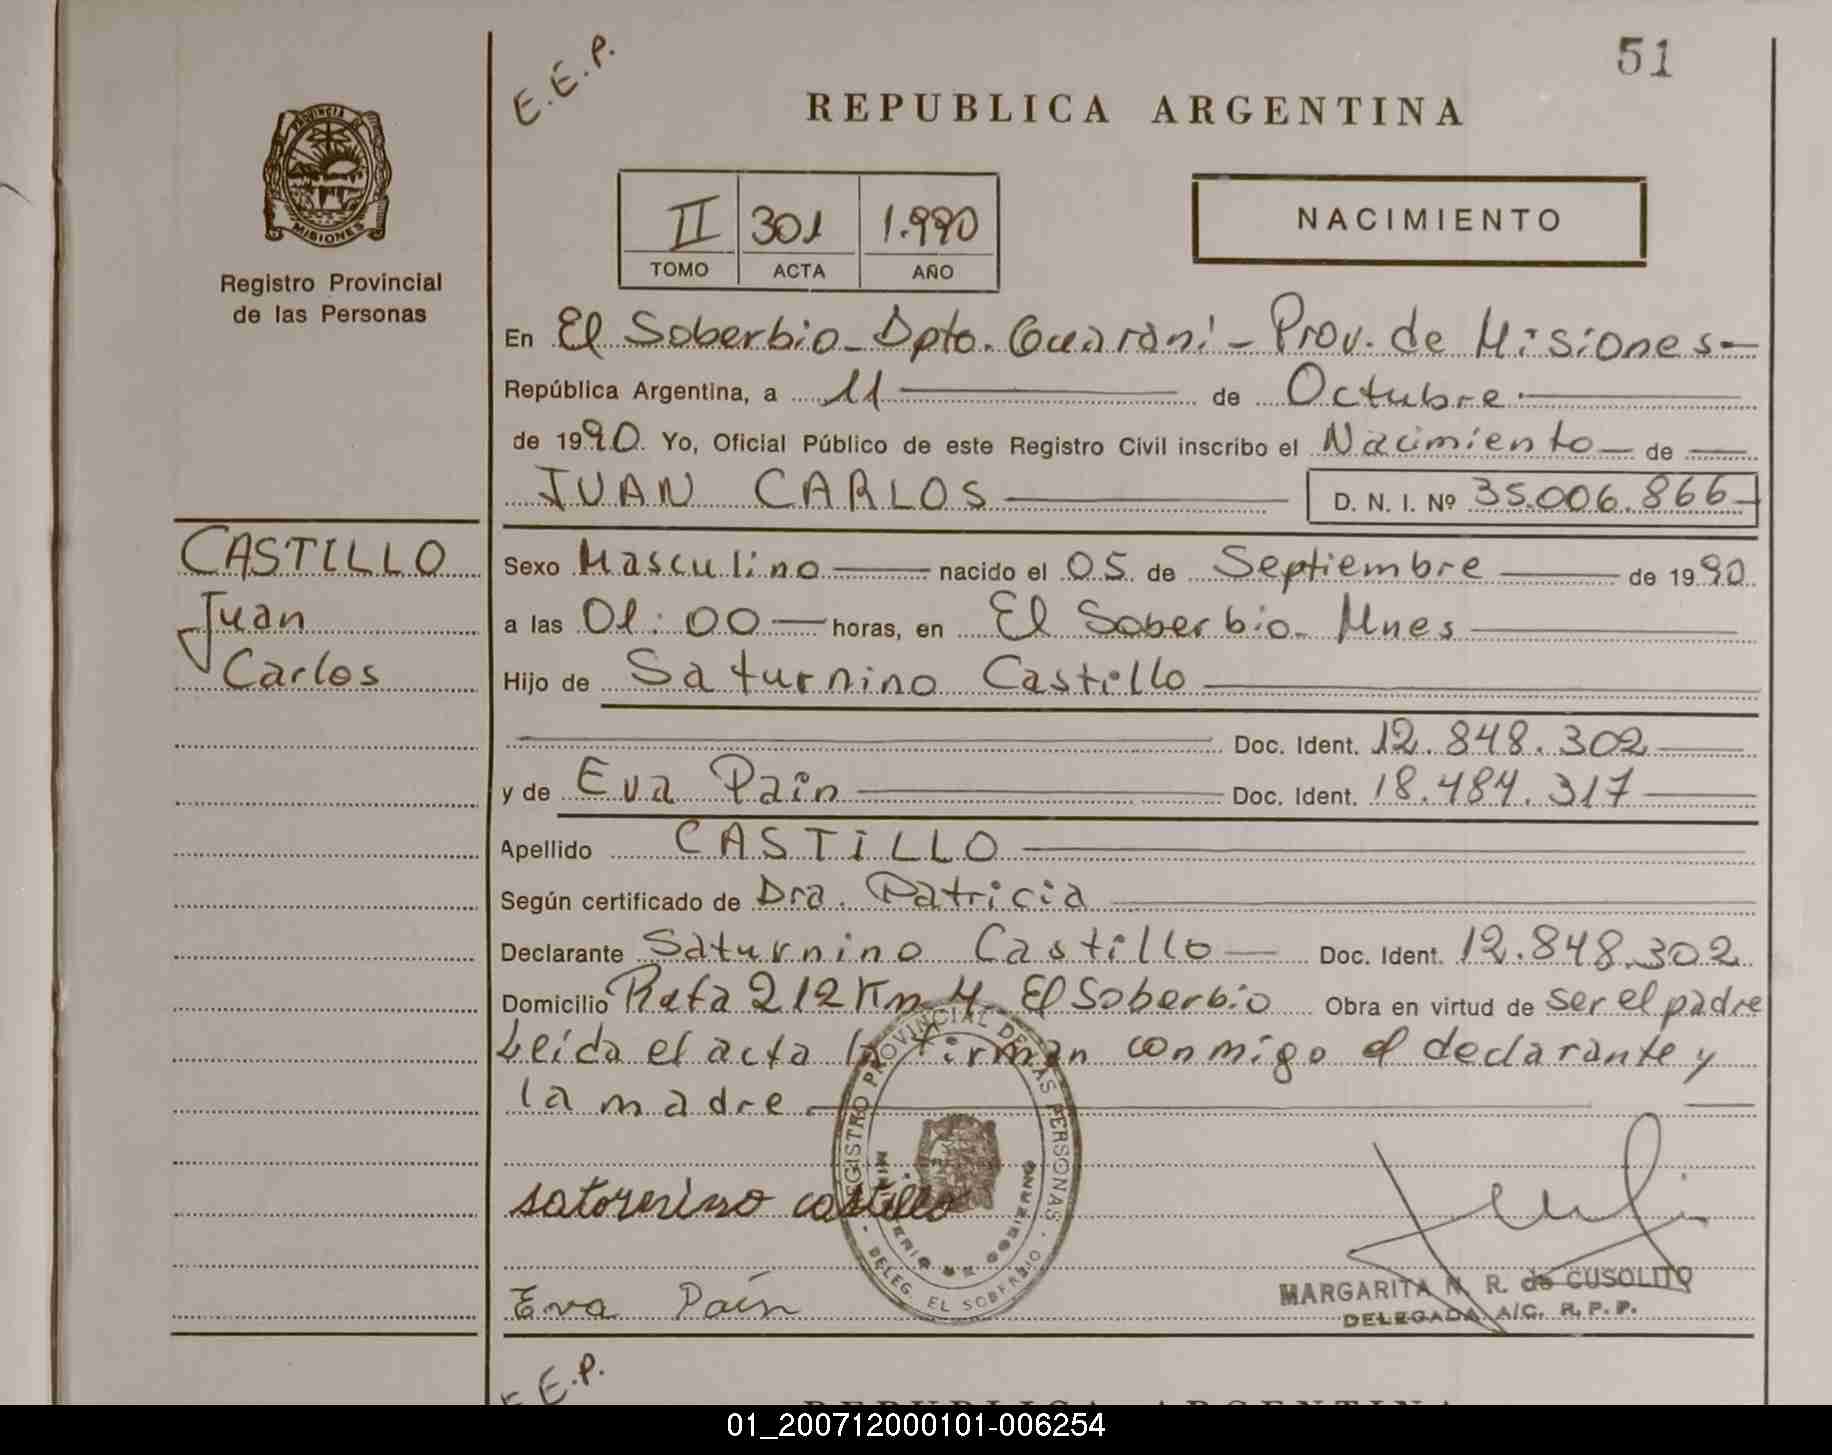 51
E.E.P.
REPUBLICA ARGENTINA
PROVINCIA DE MISIONES
Registro Provincial
de las Personas
II 301 1.990
TOMO ACTA AÑO
NACIMIENTO
En El Soberbio - Dpto. Guaraní - Prov. de Misiones -
República Argentina, a 11 de Octubre
de 1990. Yo, Oficial Público de este Registro Civil inscribo el Nacimiento de
JUAN CARLOS D. N. I. Nº 35.006.866
CASTILLO
Juan
Carlos
Sexo Masculino nacido el 05 de Septiembre de 1990
a las 01:00 horas, en El Soberbio - Mnes
Hijo de Saturnino Castillo
Doc. Ident. 12.848.302
y de Eva Pain Doc. Ident. 18.484.317
Apellido CASTILLO
Según certificado de Dra. Patricia
Declarante Saturnino Castillo Doc. Ident. 12.848.302
Domicilio Ruta 212 Km 4 El Soberbio Obra en virtud de ser el padre
Leída el acta la firman conmigo el declarante y
la madre
REGISTRO PROVINCIAL DE LAS PERSONAS
MINISTERIO DE GOBIERNO
DELEG. EL SOBERBIO
satornino castillo
Eva Paín
MARGARITA N. R. de CUSOLITO
DELEGADA A/C. R.P.P.
E.E.P.
REPUBLICA ARGENTINA
01_200712000101-006254